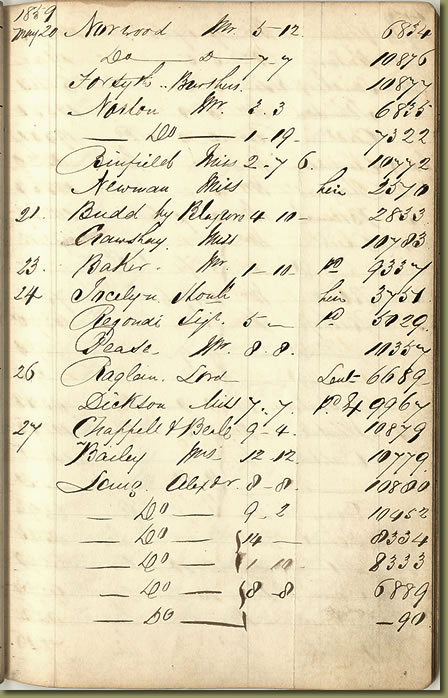 1859
May 20 Norwood Mr. 5-12 6834
Do D 7-7 10876
Forsyth 10877
Norton Mr. 3.3 6835
Do 1-19- 7322
Binfield Miss 2-7 6. 10772
Newman Miss hire 2570
21. Budd by 4 10- 2833
Crawshay Miss 10783
23. Baker. Mr. 1-10- pd 9337
24 Jocelyn hire 3751
Regondi Sigr. 5- pd. 5029
Pease Mr. 8.8. 10357
26 Raglan. Lord Lent 6689
Dickson Miss 7.7. 9967
27 Chappell & Beale 9-4. 10879
Bailey Mrs 12-12. 10779
Alexdr. 8-8. 10880
Do 9-2 10452
Do 14 - 8334
Do 1 10- 8333
Do 8-8 6889
Do -90